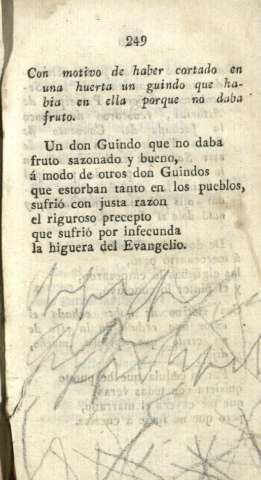 249
Con motivo de haber cortado en
una huerta un guindo que ha-
bia en ella porque no daba
fruto.
Un don Guindo que no daba
fruto sazonado y bueno,
á modo de otros don Guindos
que estorban tanto en los pueblos,
sufrió con justa razon
el riguroso precepto
que sufrió por infecunda
la higuera del Evangelio.